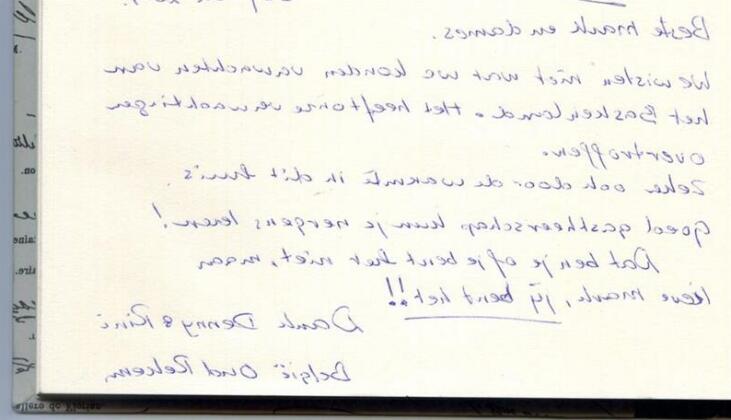 Beste Mark en dames.
We wisten niet wat we konden verwachten van
het Baskenland. Het heeft onze verwachtingen
overtroffen.
Zeker ook door de warmte in dit huis.
Goed gastheerschap kun je nergens leren!
Dat ben je of je bent het niet, maar
lieve Mark, jij bent het!!!
Dank Denny & Rini
België Oud Rekem,